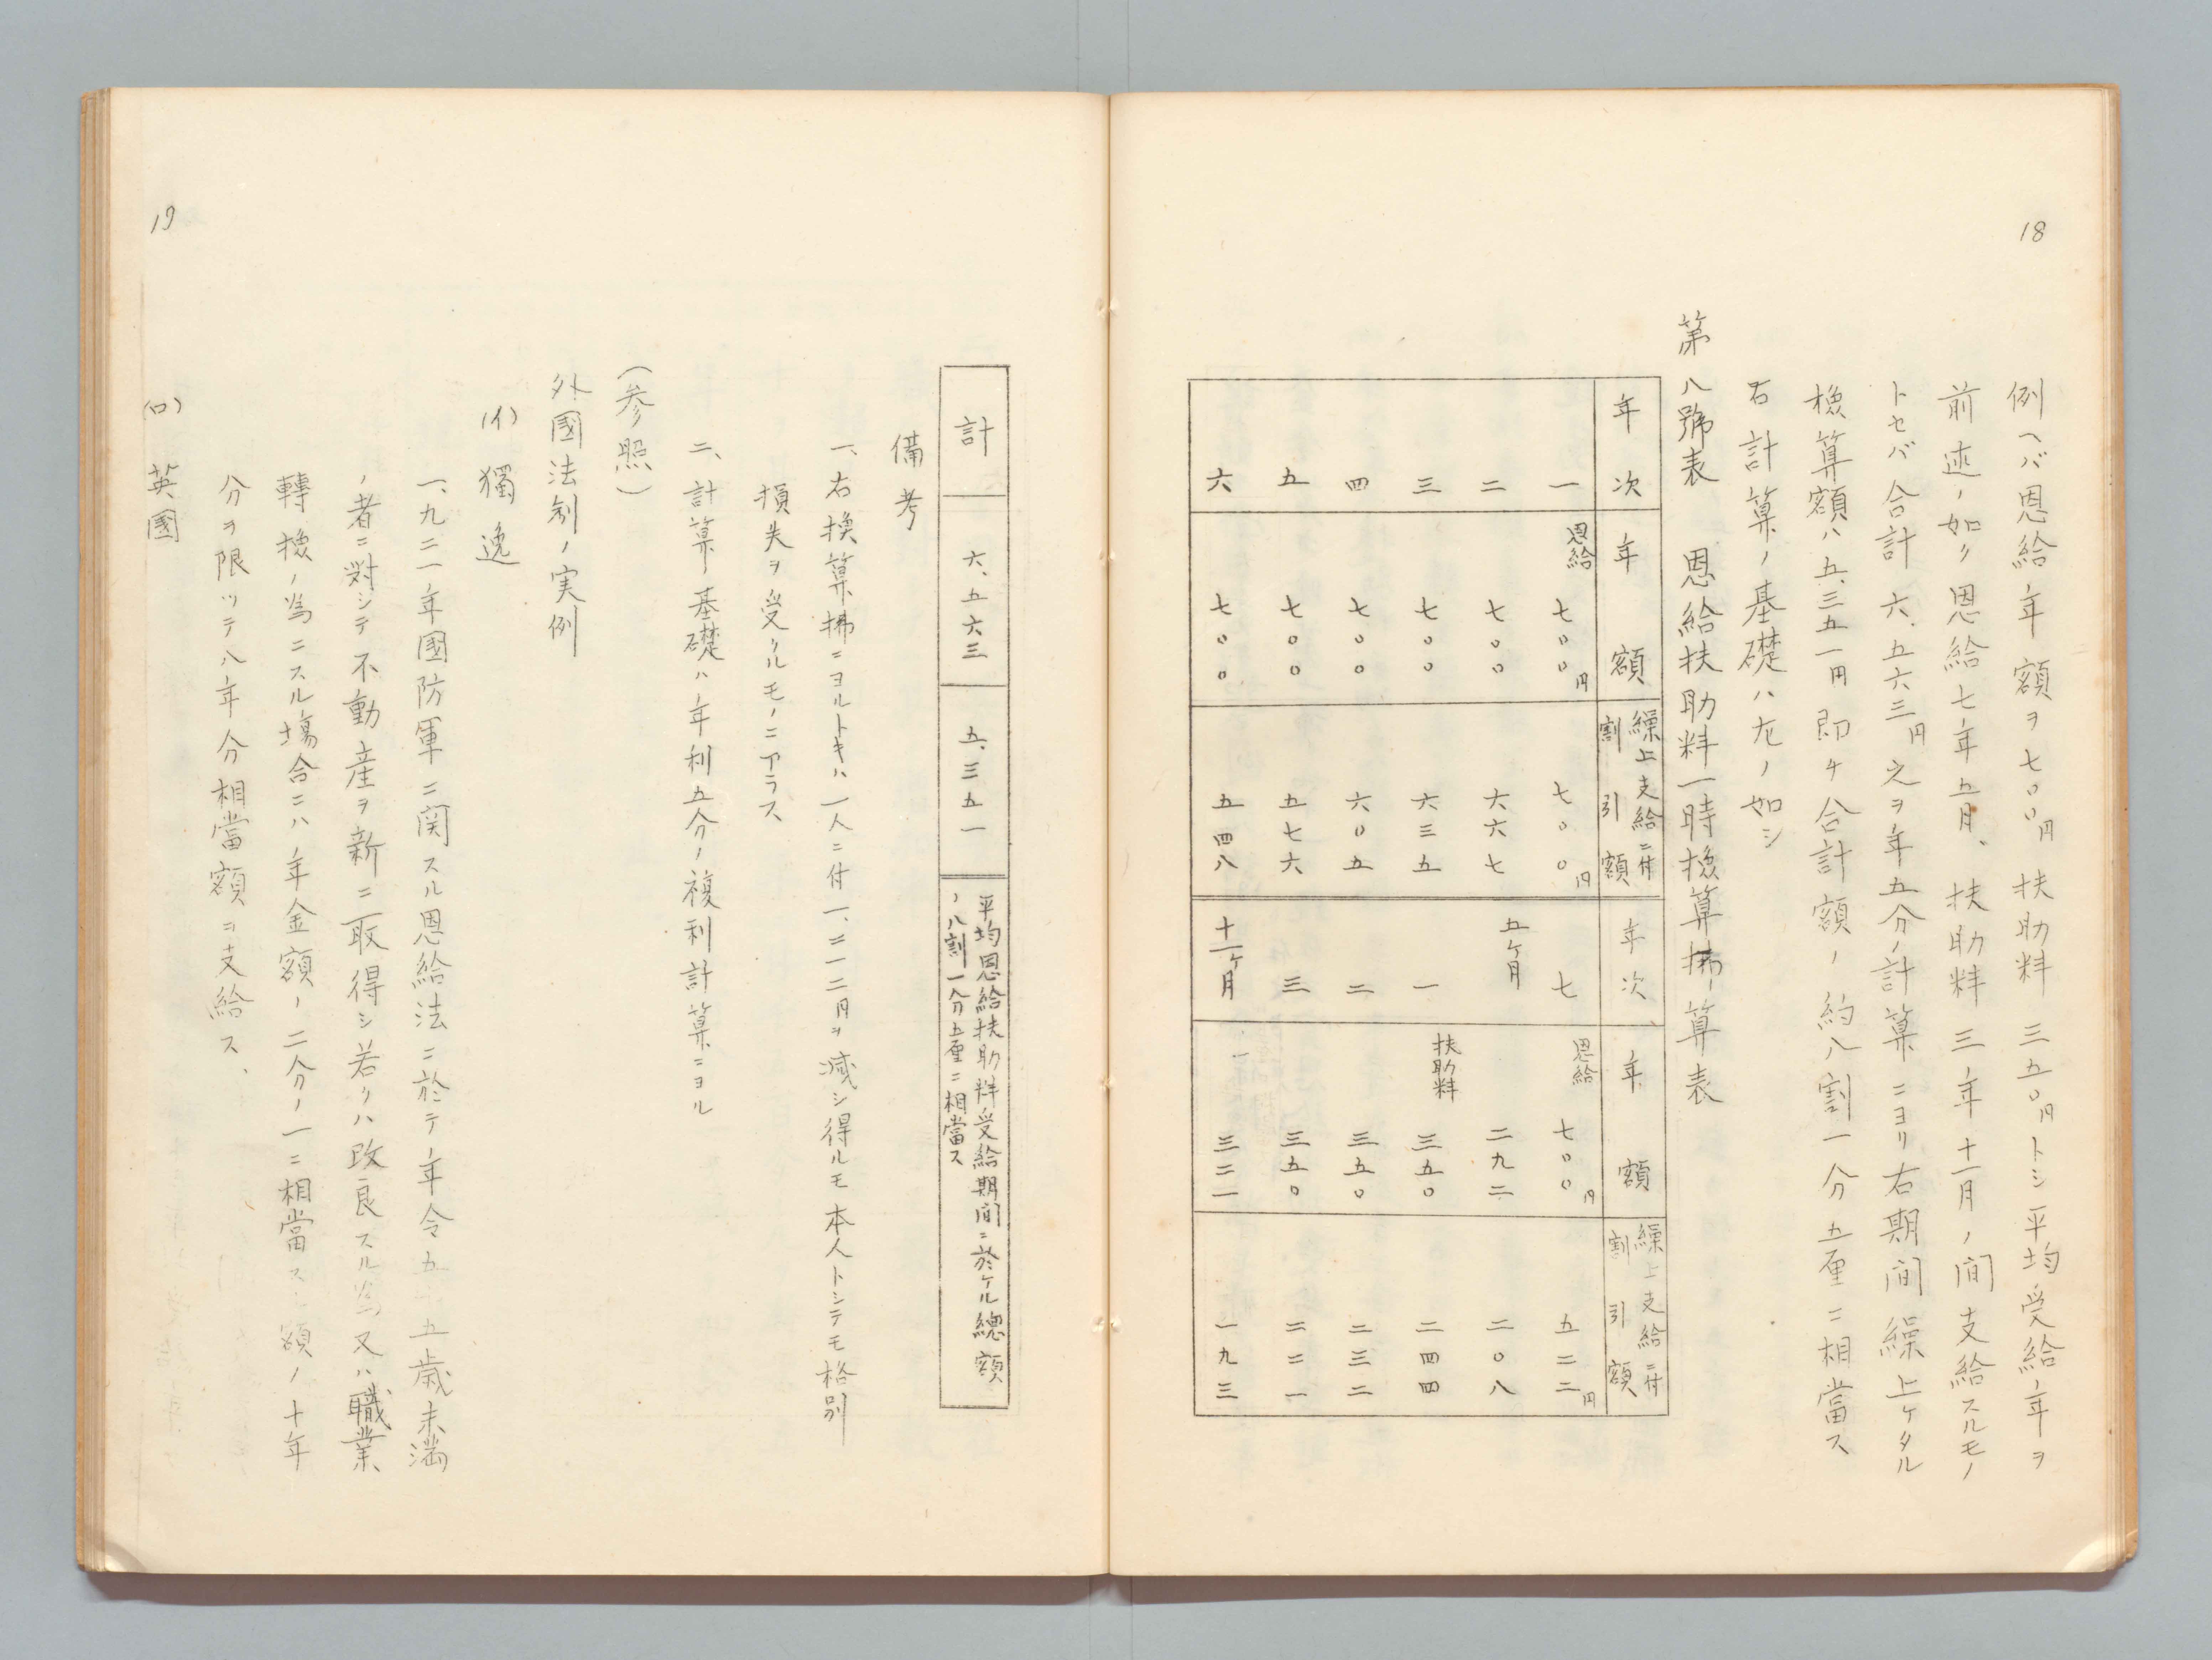 18
例ヘバ恩給年額ヲ七〇〇円扶助料三五〇円トシ平均受給年ヲ
前述ノ如ク恩給七年五月、扶助料三年十一月ノ間支給スルモノ
トセバ合計六、五六三円之ヲ年五分ノ計算ニヨリ右期間繰上ケタル
換算額ハ五、三五一円即チ合計額ノ約八割一分五厘ニ相當ス
右計算ノ基礎ハ左ノ如シ
第八號表 恩給扶助料一時換算拂算表
年次 年額 繰上支給ニ付割引額 年次 年額 繰上支給ニ付割引額
一 恩給 七〇〇円 七〇〇円 七 恩給 七〇〇円 五二二円
二 七〇〇 六六七 五ヶ月 二九二 二〇八
三 七〇〇 六三五 一 扶助料 三五〇 二四四
四 七〇〇 六〇五 二 三五〇 二三二
五 七〇〇 五七六 三 三五〇 二二一
六 七〇〇 五四八 十一ヶ月 三二一 一九三
19
計 六、五六三 五、三五一 平均恩給扶助料受給期間ニ於ケル總額
ノ八割一分五厘ニ相當ス
備考
一、右換算拂ニヨルトキハ一人ニ付一、二一二円ヲ減シ得ルモ本人トシテモ格別
損失ヲ受クルモノニアラス
二、計算ノ基礎ハ年利五分ノ複利計算ニヨル
(参照)
外國法制ノ実例
(イ) 獨逸
一、九二一年國防軍ニ関スル恩給法ニ於テ年令五十五歳未満
ノ者ニ對シテ不動産ヲ新ニ取得シ若クハ改良スル為又ハ職業
轉換ノ為ニスル場合ニハ年金額ノ二分ノ一ニ相當スル額ノ十年
分ヲ限ツテ八年分相當額ヲ支給ス、
(ロ) 英國